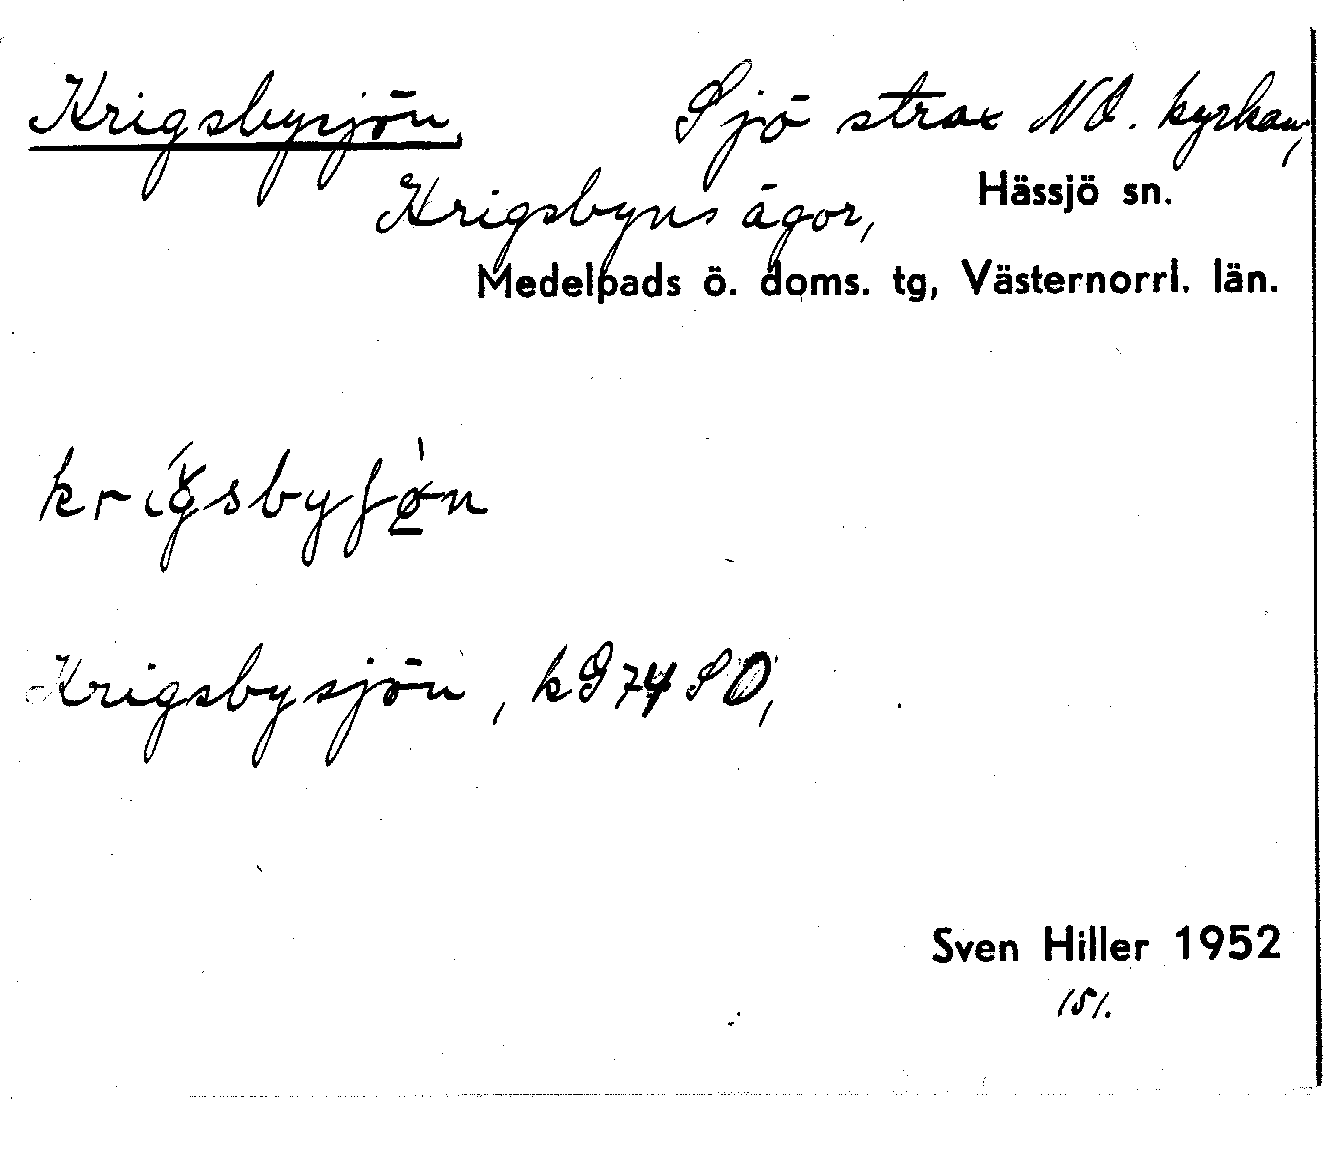 Krigsbysjön, Sjö strax NO. kyrkan,
Krigsbyns ägor, Hässjö sn.
Medelpads ö. doms. tg, Västernorrl. län.
Krigsbysjön, kG 74 SO,
Sven Hiller 1952
151.